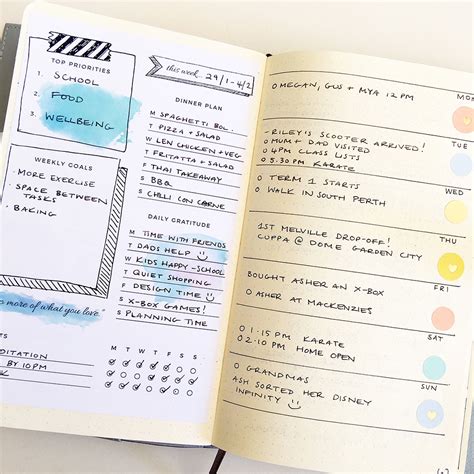 TOP PRIORITIES
1. SCHOOL
2. FOOD
3. WELLBEING
WEEKLY GOALS
- MORE EXERCISE
- SPACE BETWEEN
TASKS
- BAKING
more of what you love"
BY 10PM
this week: 29/1-4/2
DINNER PLAN
M SPAGHETTI BOL.
T PIZZA + SALAD
W LEN CHICKEN + VEG
T FRITATTA + SALAD
F THAI TAKEAWAY
S BBQ
S CHILLI CON CARNE
DAILY GRATITUDE
M TIME WITH FRIENDS
T DADS HELP
W KIDS HAPPY-SCHOOL
T QUIET SHOPPING
F DESIGN TIME
S X-BOX GAMES!
S PLANNING TIME
M T W T F S S
MEGAN, GUS + MYA 12PM
MO
- RILEY'S SCOOTER ARRIVED!
MUM + DAD VISITED
4PM CLASS LISTS
5.30PM KARATE
TUE
TERM 1 STARTS
WALK IN SOUTH PERTH
WED
1ST MELVILLE DROP-OFF!
CUPPA @ DOME GARDEN CITY
THU
BOUGHT ASHER AN X-BOX
ASHER AT MACKENZIES
FRI
1:15 PM KARATE
2:10 PM HOME OPEN
SAT
GRANDMAS
ASH SORTED HER DISNEY
INFINITY
SUN